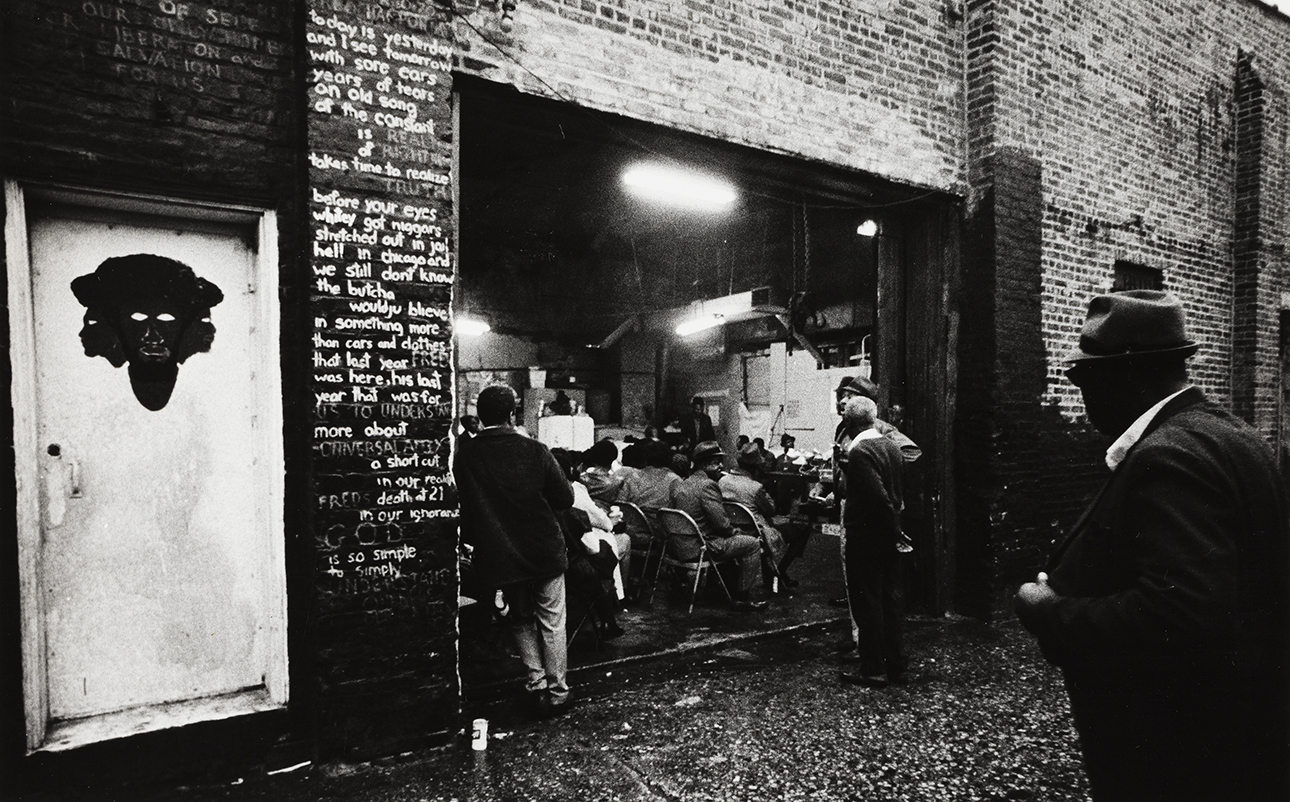 OF SELF
OUR ONLY HOPE
FOR LIBERATION and
SALVATION
FOR US
today is yesterday
and I see tomorrow
with sore ears
years of tears
an old song
of the constant
is REAL
of
takes time to realize
TRUTH
before your eyes
whitey got niggars
stretched out in jail
hell in chicago and
we still don't know
the butcha
wouldju blieve
in something more
than cars and clothes
that last year FRED
was here, his last
year that was for
US TO UNDERSTAND
more about
UNIVERSALITY
a short cut
in our reality
FREDS death at 21
in our ignorance
GOD
is so simple
to simply
UNDERSTAND